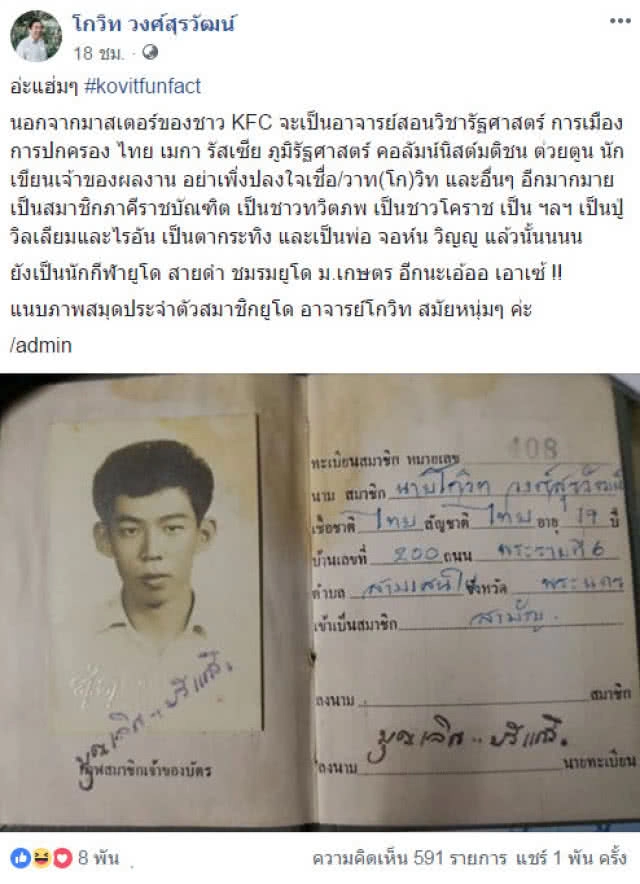 โกวิท วงศ์สุรวัฒน์
18 ชม. ·
อ่ะแฮ่มๆ #kovitfunfact
นอกจากมาสเตอร์ของชาว KFC จะเป็นอาจารย์สอนวิชารัฐศาสตร์ การเมือง
การปกครอง ไทย เมกา รัสเซีย ภูมิรัฐศาสตร์ คอลัมน์นิสต์มติชน ต่วยตูน นัก
เขียนเจ้าของผลงาน อย่าเพิ่งปลงใจเชื่อ/วาท(โก)วิท และอื่นๆ อีกมากมาย
เป็นสมาชิกภาคีราชบัณฑิต เป็นชาวทวิตภพ เป็นชาวโคราช เป็น ฯลฯ เป็นปู่
วิลเลียมและไรอัน เป็นตากระทิง และเป็นพ่อ จอห์น วิญญู แล้วนั้นนนน
ยังเป็นนักกีฬายูโด สายดำ ชมรมยูโด ม.เกษตร อีกนะเอ้ออ เอาเซ้ !!
แนบภาพสมุดประจำตัวสมาชิกยูโด อาจารย์โกวิท สมัยหนุ่มๆ ค่ะ
/admin
ทะเบียนสมาชิก หมายเลข 408
นาม สมาชิก นายโกวิท วงศ์สุรวัฒน์
เชื้อชาติ ไทย สัญชาติ ไทย อายุ 19 ปี
บ้านเลขที่ 200 ถนน พระรามที่ 6
ตำบล สามเสนใน จังหวัด พระนคร
เข้าเป็นสมาชิก สามัญ
ลงนาม สมาชิก
ลงนาม นายทะเบียน
สมาชิกเจ้าของบัตร
8 พัน
ความคิดเห็น 591 รายการ แชร์ 1 พัน ครั้ง